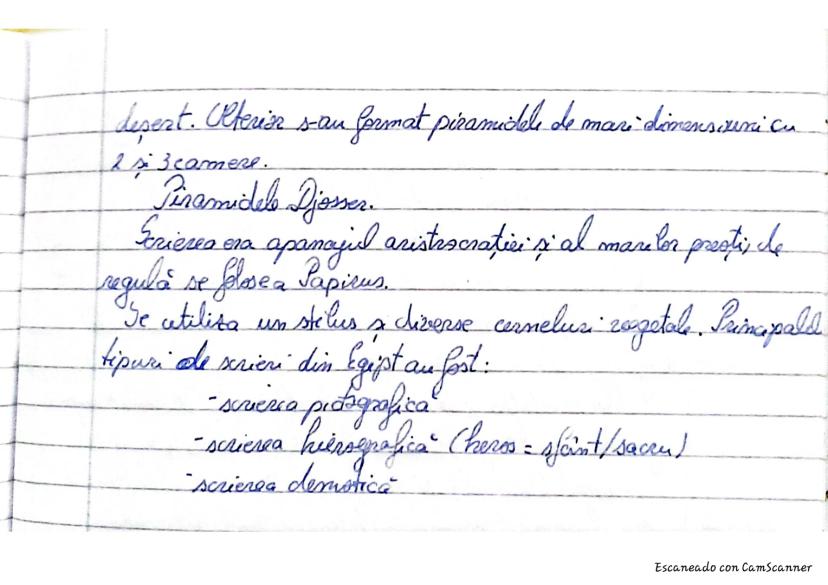 deșert. Ulterior s-au format piramidele de mari dimensiuni cu
2 și 3 camere.
Piramidele Djosser.
Scrierea era apanajul aristrocrației și al marilor preoți, de
regulă se folosea Papirus.
Se utiliza un stilus și diverse cerneluri vegetale. Principalele
tipuri de scrieri din Egipt au fost:
-scrierea pictografică
-scrierea hierografică (heros = sfânt/sacru)
-scrierea demotică
Escaneado con CamScanner